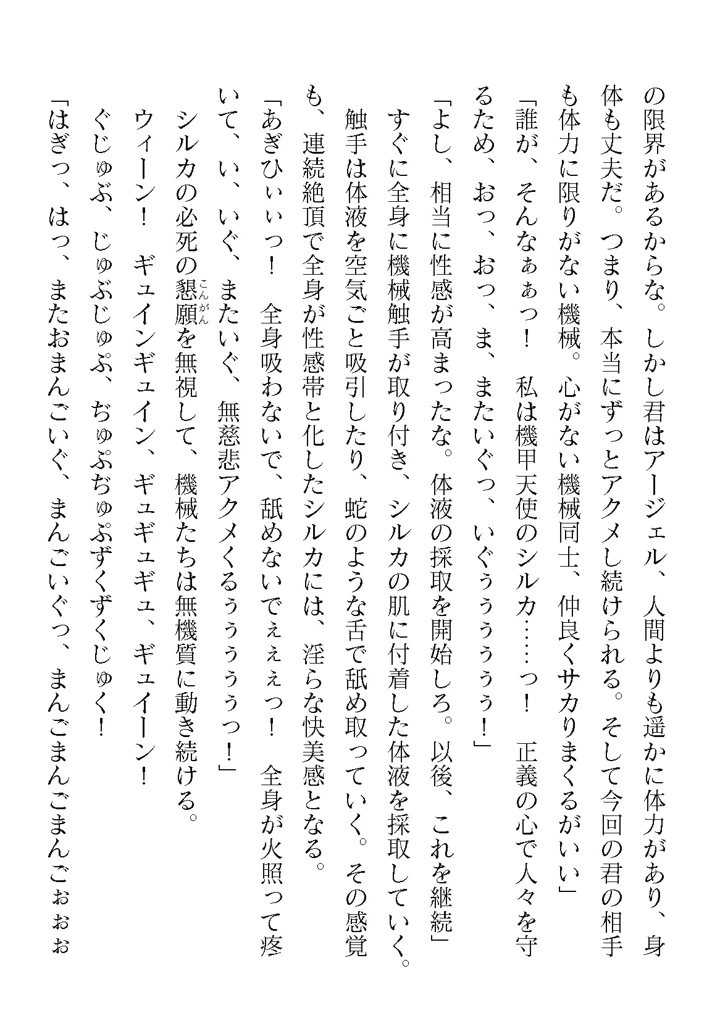 の限界があるからな。しかし君はアージェル、人間よりも遥かに体力があり、身
体も丈夫だ。つまり、本当にずっとアクメし続けられる。そして今回の君の相手
も体力に限りがない機械。心がない機械同士、仲良くサカりまくるがいい」
「誰が、そんなぁぁっ！　私は機甲天使のシルカ……っ！　正義の心で人々を守
るため、おっ、おっ、ま、またいぐっ、いぐぅぅぅぅぅ！」
「よし、相当に性感が高まったな。体液の採取を開始しろ。以後、これを継続」
すぐに全身に機械触手が取り付き、シルカの肌に付着した体液を採取していく。
触手は体液を空気ごと吸引したり、蛇のような舌で舐め取っていく。その感覚
も、連続絶頂で全身が性感帯と化したシルカには、淫らな快美感となる。
「あぎひぃぃっ！　全身吸わないで、舐めないでぇぇぇっ！　全身が火照って疼
いて、い、いぐ、またいぐ、無慈悲アクメくるぅぅぅぅぅっ！」
シルカの必死の懇願こんがんを無視して、機械たちは無機質に動き続ける。
ウィーン！　ギュインギュイン、ギュギュギュ、ギュイーン！
ぐじゅぶ、じゅぶじゅぷ、ぢゅぷぢゅぷずくずくじゅく！
「はぎっ、はっ、またおまんごいぐ、まんごいぐっ、まんごまんごまんごぉぉぉ